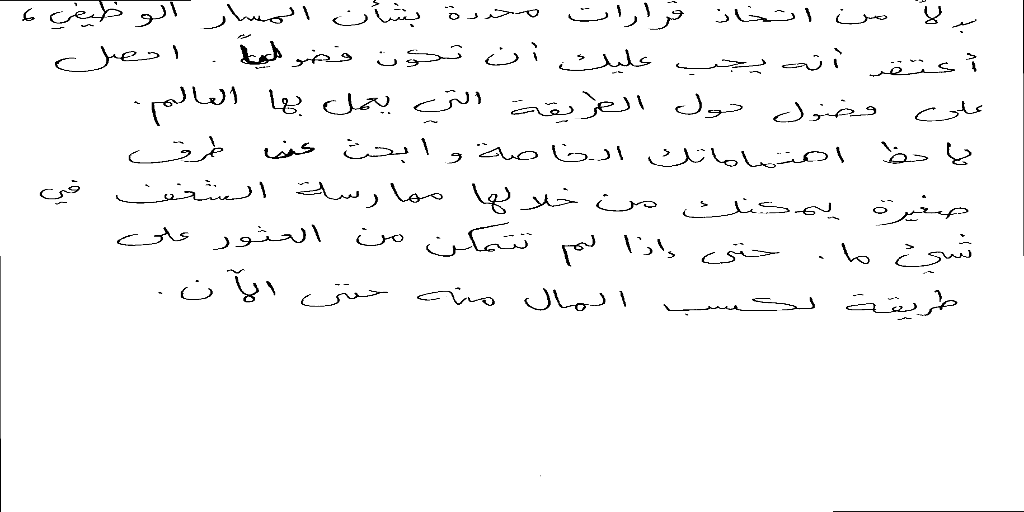 بدلاً من اتخاذ قرارات محددة بشأن المسار الوظيفي،
أعتقد أنه يجب عليك أن تكون فضولياً. احصل
على فضول حول الطريقة التي يعمل بها العالم.
لاحظ اهتماماتك الخاصة وابحث عن طرق
صغيرة يمكنك من خلالها ممارسة الشغف في
شيء ما. حتى إذا لم تتمكن من العثور على
طريقة لكسب المال منه حتى الآن.